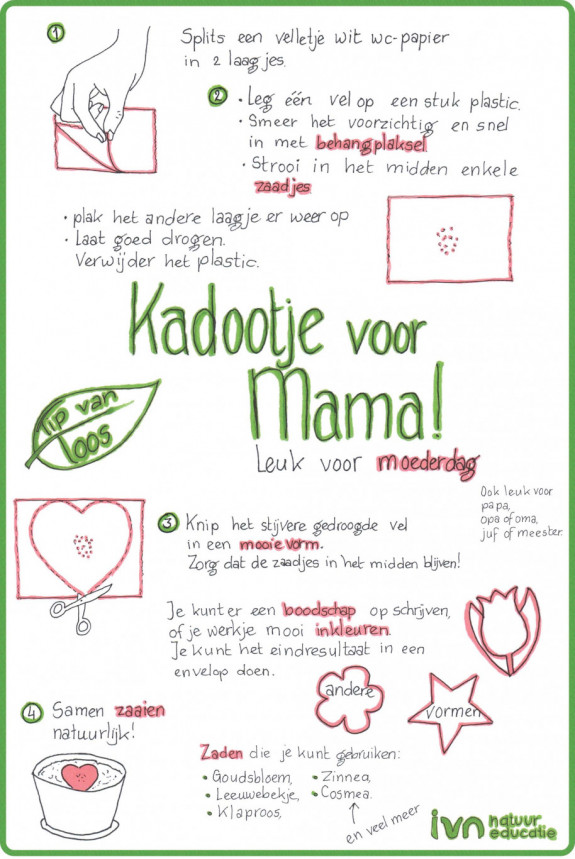 1
Splits een velletje wit wc-papier
in 2 laagjes.
2
• Leg één vel op een stuk plastic.
• Smeer het voorzichtig en snel
in met behangplaksel
• Strooi in het midden enkele
zaadjes
• plak het andere laagje er weer op
• Laat goed drogen.
Verwijder het plastic.
Kadootje voor
Mama!
Leuk voor moederdag
Tip van
loos
Ook leuk voor
papa,
opa of oma,
juf of meester.
3 Knip het stijvere gedroogde vel
in een mooie vorm.
Zorg dat de zaadjes in het midden blijven!
Je kunt er een boodschap op schrijven,
of je werkje mooi inkleuren.
Je kunt het eindresultaat in een
envelop doen.
andere
vormen
4 Samen zaaien
natuurlijk!
Zaden die je kunt gebruiken:
• Goudsbloem,
• Leeuwebekje,
• Klaproos,
• Zinnea,
• Cosmea.
en veel meer
ivn natuur
educatie